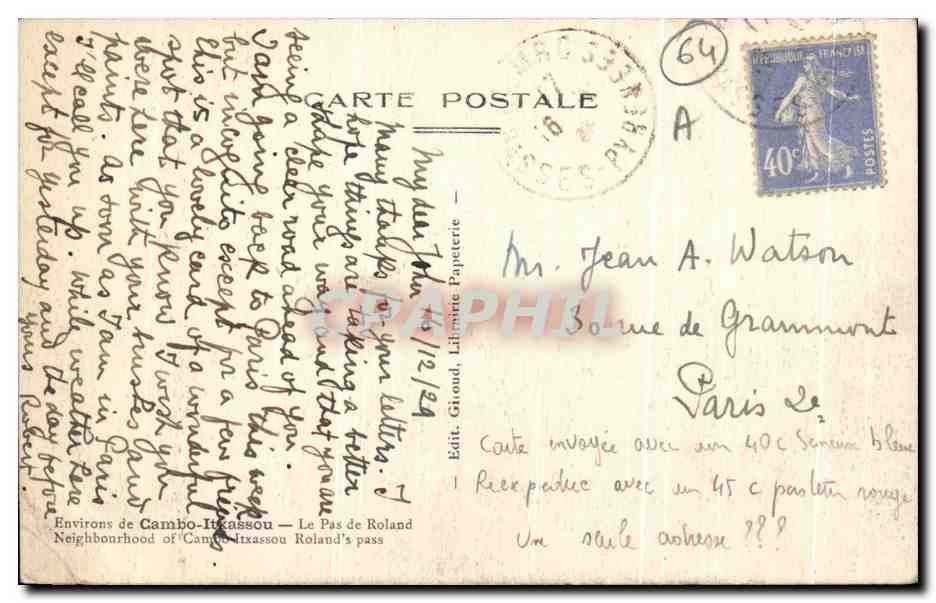 CARTE POSTALE
64
A
REPUBLIQUE FRANÇAISE
40c
POSTES
BASSES-PYR
My dear John 16/12/29
Many thanks for your letters. I
hope things are taking a better
shape your way and that you are
seeing a clear road ahead of you.
I am going back to Paris this week
but incognito except for a few friends.
This is a lovely card of a wonderful
spot that you know I wish you
were here with your brushes and
paints. As soon as I am in Paris
I'll call you up. While weather here
except for yesterday and the day before
yours Robert.
Edit. Giroud, Librairie Papeterie
Mr. Jean A. Watson
30 rue de Grammont
Paris 2e
Carte envoyée avec un 40c Semeuse bleue
Reexpediee avec un 45 c pasteur rouge
Une seule adresse ???
Environs de Cambo-Itxassou — Le Pas de Roland
Neighbourhood of Cambo-Itxassou Roland's pass
CRAPHIL